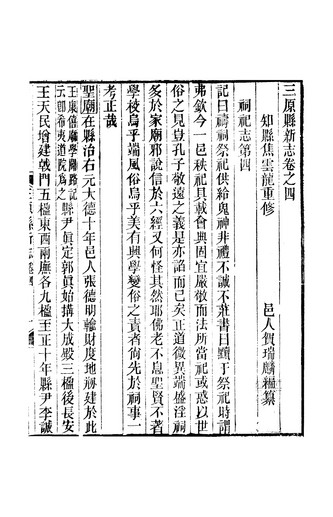 三原縣新志卷之四
知縣焦雲龍重修
邑人賀瑞麟編纂
祠祀志第四
記曰禱祠祭祀供給鬼神非禮不誠不莊書曰黷于祭祀時謂
弗欽今一邑秩祀具載會典固宜嚴敬而法所當祀或惑以世
俗之見豈孔子敬遠之義是亦諂而已矣正道微異端盛淫祠
多於家廟邪說信於六經又何怪其然耶佛老不息聖賢不著
學校烏乎端風俗烏乎美有興學變俗之責者尚先於祠事一
考正哉
聖廟在縣治右元大德十年邑人張德明輸財度地剏建於此
王康僖廟學階路記
元即希夷道院為之
縣尹眞定郭眞始搆大成殿三楹後長安
王天民增建戟門五楹東西兩廡各九楹至正十年縣尹李誠